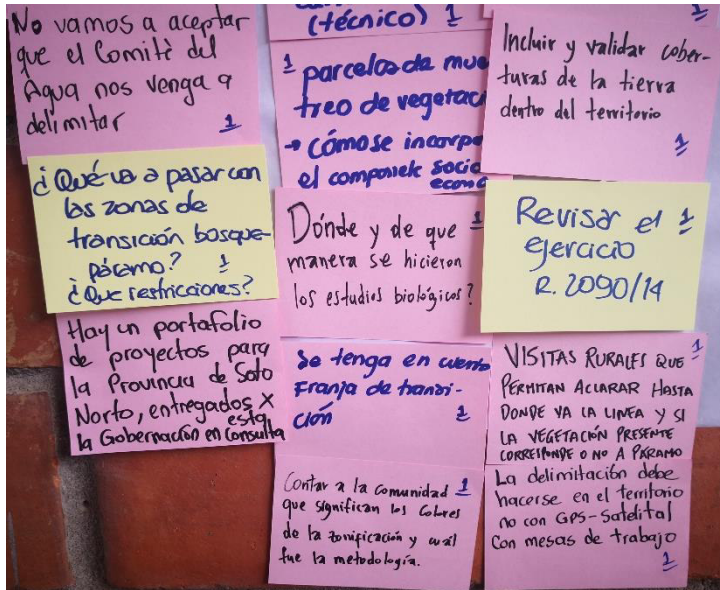 No vamos a aceptar
que el Comitè del
Agua nos venga a
delimitar
1
¿Què va a pasar con
las zonas de
transición bosque-
páramo? 1
¿Que restricciones?
Hay un portafolio
de proyectos para
la Provincia de Soto
Norte, entregados X
esta
la Gobernación en consulta
(técnico) 1
1 parcelas de mues
treo de vegetaci
→ cómo se incorpo
el componente socio
econo
Dónde y de que 1
manera se hicieron
los estudios biológicos?
Se tenga en cuenta
Franja de transi-
ción 1
Contar a la comunidad 1
que significan los colores
de la zonificación y cuál
fue la metodología.
1
Incluir y validar cober-
turas de la tierra
dentro del territorio
1
Revisar el 1
ejercicio
R. 2090/14
1
VISITAS RURALES QUE
PERMITAN ACLARAR HASTA
DONDE VA LA LINEA Y SI
LA VEGETACIÓN PRESENTE
CORRESPONDE O NO A PÁRAMO
La delimitación debe
hacerse en el territorio
no con GPS-Satelital
Con mesas de trabajo
1